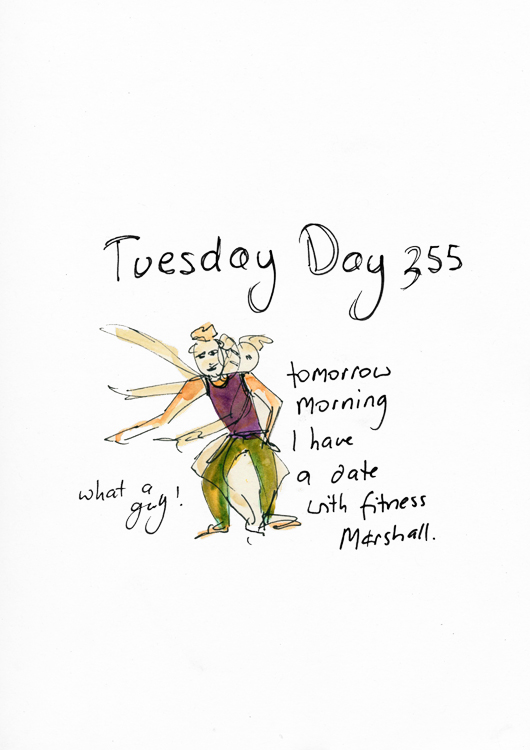 Tuesday Day 355
tomorrow
morning
I have
a date
with fitness
Marshall.
what a
guy!